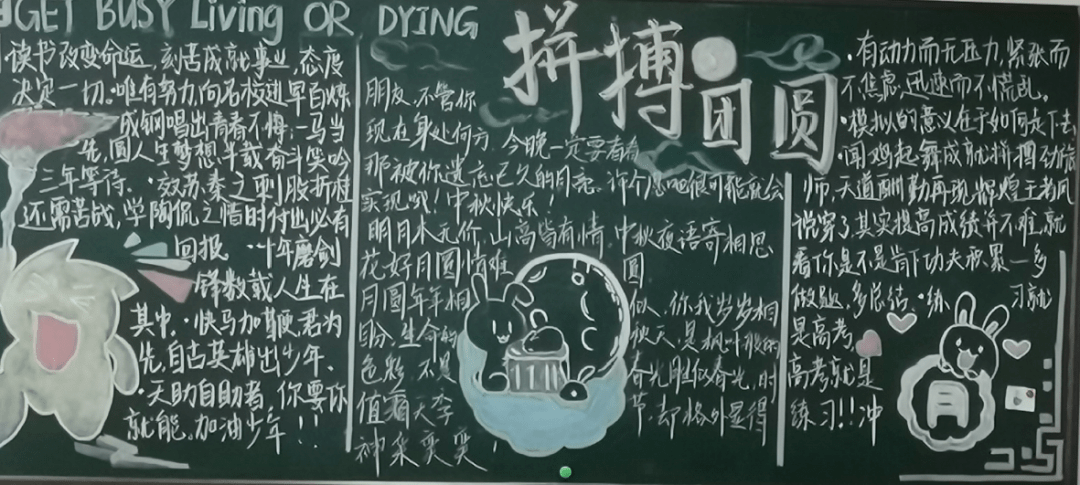 GET BUSY Living OR DYING
拼搏团圆
读书改变命运，刻苦成就事业，态度
决定一切。唯有努力，向名校进军百炼
成钢唱出青春不悔；一马当
先，圆人生梦想，半载奋斗笑吟
三年等待．·效苏秦之刺股折桂
还需苦战，学陶侃之惜时付出必有
回报．·十年磨剑
锋数载人生在
其中．·快马加鞭君为
先，自古英雄出少年．
·天助自助者，你要你
就能。加油少年！！
朋友，不管你
现在身处何方，今晚一定要看看
那被你遗忘已久的月亮。许个愿吧很可能就会
实现哦！中秋快乐！
明月本无价，山高皆有情，中秋夜语寄相思
花好月圆情难 圆
月圆年年相 似，你我岁岁相
盼．生命的 秋天，是枫叶般的
色彩，不是 春光胜似春光，时
值霜天季 节，却格外显得
神采奕奕！
·有动力而无压力，紧张而
不焦虑，迅速而不慌乱。
·模拟的意义在于如何走下去
·闻鸡起舞成就拼搏劲旅
师，天道酬勤再现辉煌王者风
说穿了其实提高成绩并不难，就
看你是不是肯下功夫积累—多
做题，多总结．·练 习就
是高考，
高考就是
练习！！冲
月